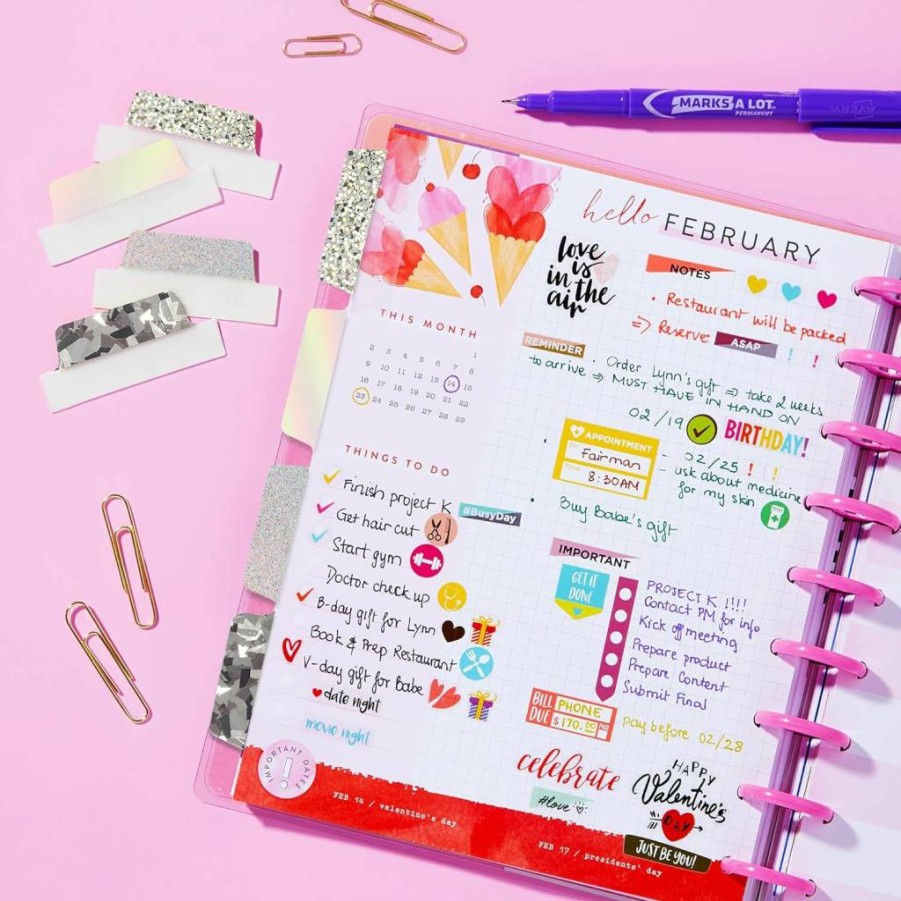 MARKS A LOT
PERMANENT
AVERY
hello FEBRUARY
love
is
in the
air
NOTES
• Restaurant will be packed
⇒ Reserve ASAP ! !
THIS MONTH
1
2 3 4 5 6 7 8
9 10 11 12 13 14 15
16 17 18 19 20 21 22
23 24 25 26 27 28 29
REMINDER • Order Lynn's gift ⇒ take 2 weeks
to arrive ⇒ MUST HAVE IN HAND ON
02/19 BIRTHDAY!
APPOINTMENT
Fairman
8:30AM
- 02/25 ! !
- ask about medicine
for my skin
• Buy Babe's gift
THINGS TO DO
Finish project K
Get hair cut
#BusyDay
Start gym
Doctor check up
B-day gift for Lynn
Book & Prep Restaurant
V-day gift for Babe
date night
movie night
IMPORTANT
GET IT
DONE
PROJECT K !!!!
Contact PM for info
Kick off meeting
Prepare product
Prepare Content
Submit Final
BILL
DUE
PHONE
$170.00
pay before 02/28
celebrate
#love
HAPPY
Valentine's
DAY
JUST BE YOU!
IMPORTANT DATES
!
FEB 14 / valentine's day
FEB 17 / presidents' day